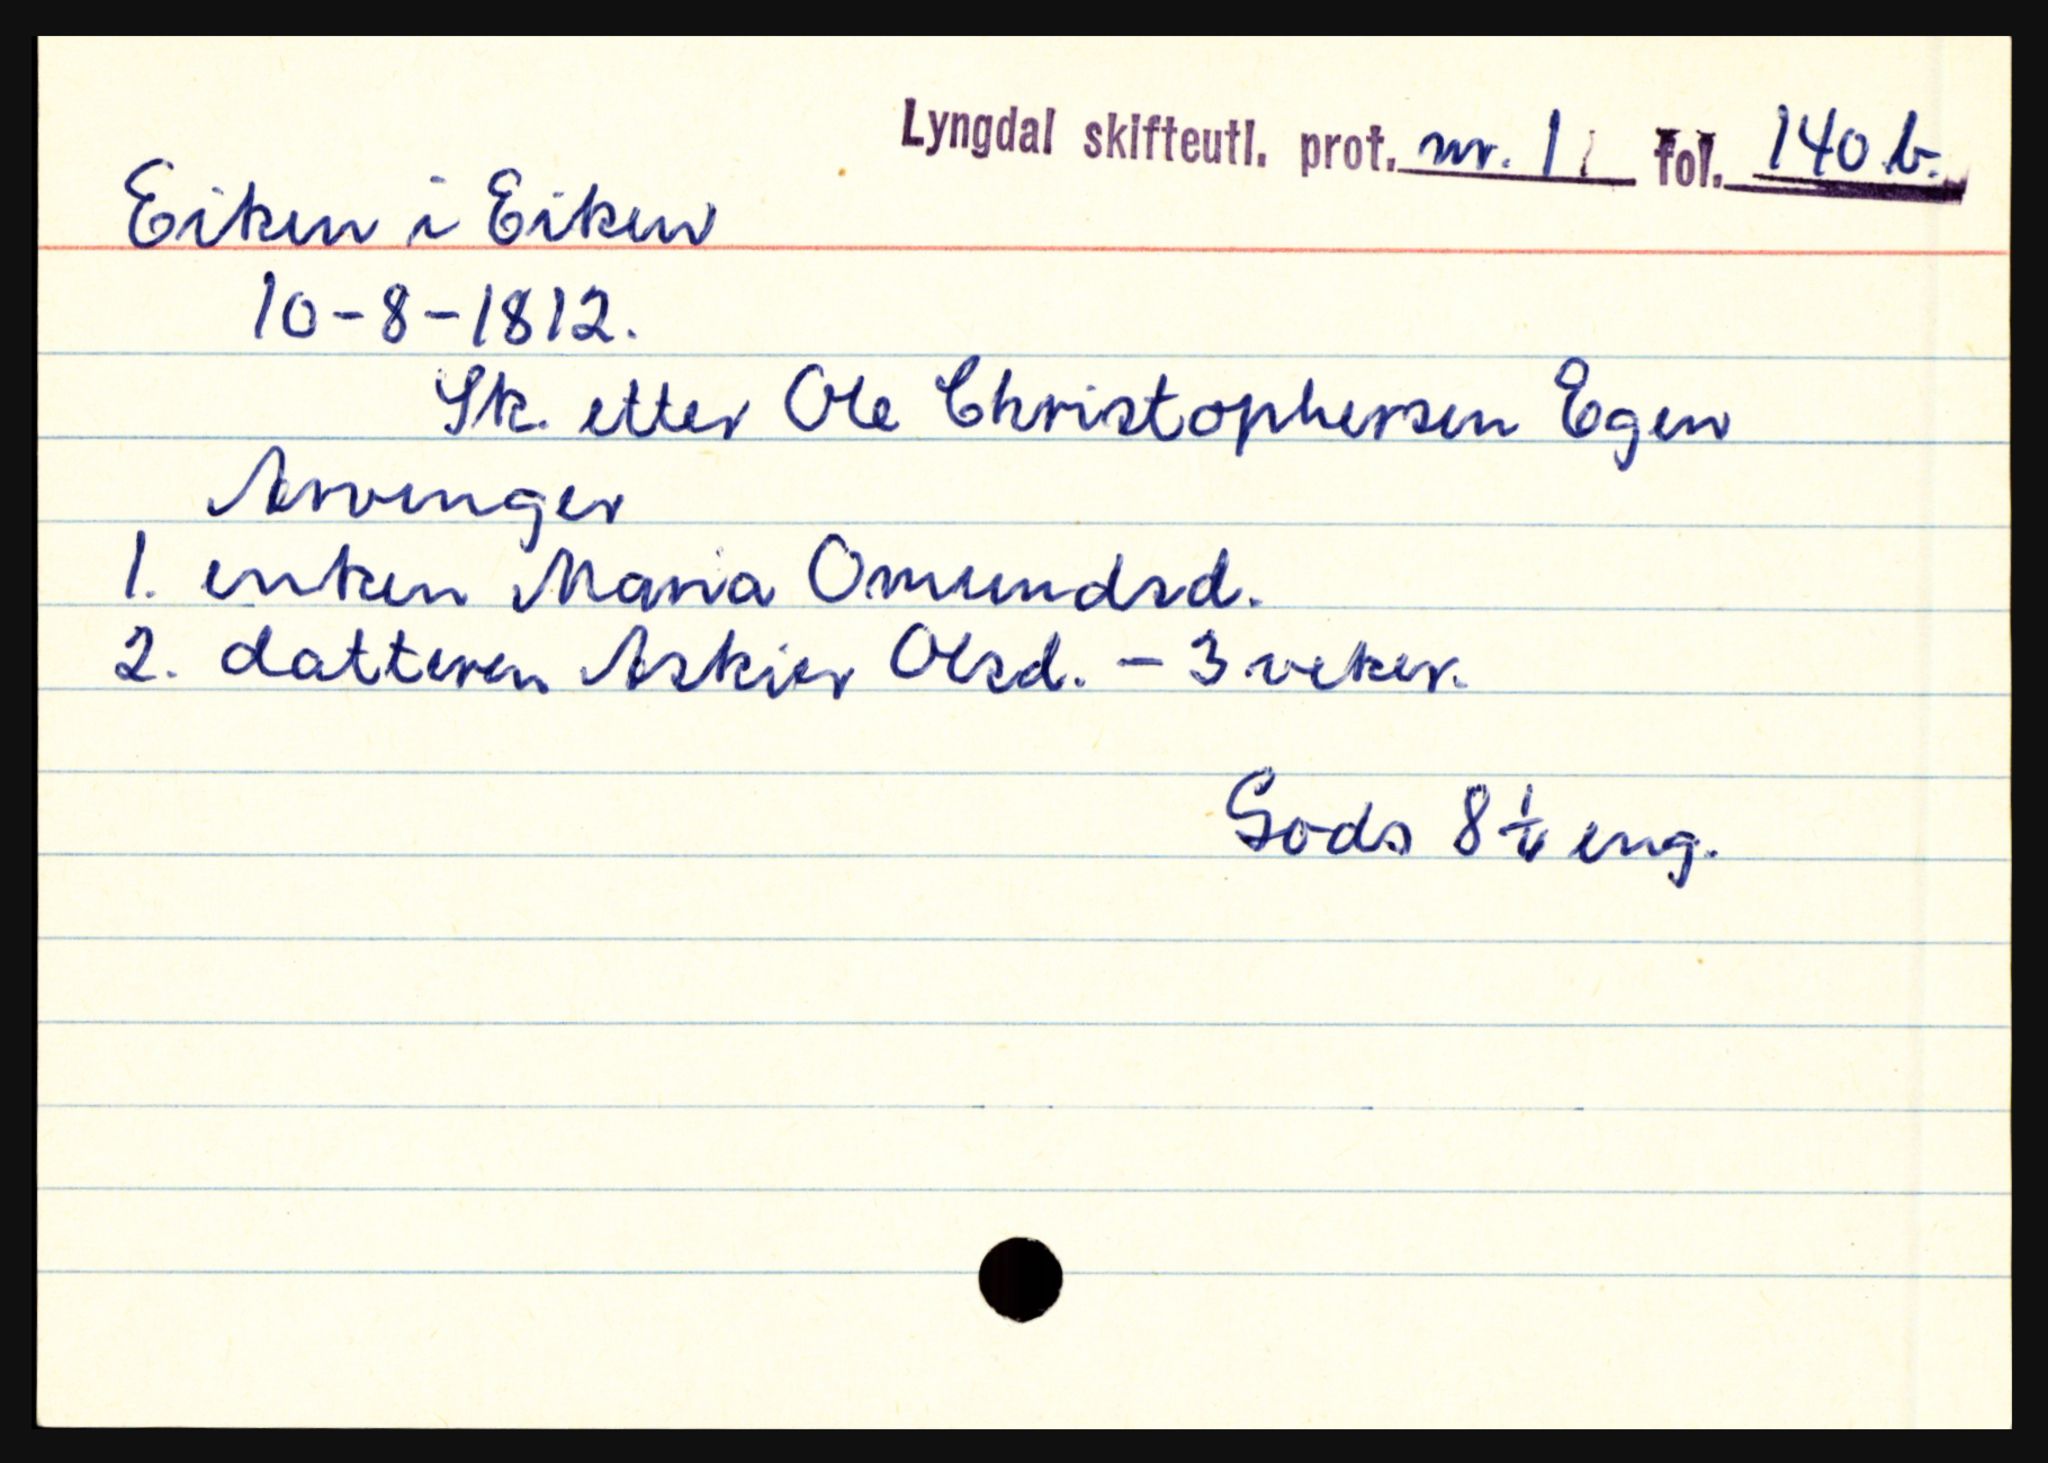 Lyngdal skifteutl. prot. nr. 1 fol. 140 b.
Eiken i Eiken
10-8-1812.
Sk. etter Ole Christophersen Egen
Arvinger
1. enken Maria Omundsd.
2. datteren Askier Olsd. - 3 veker.
Gods 8 1/4 eng.